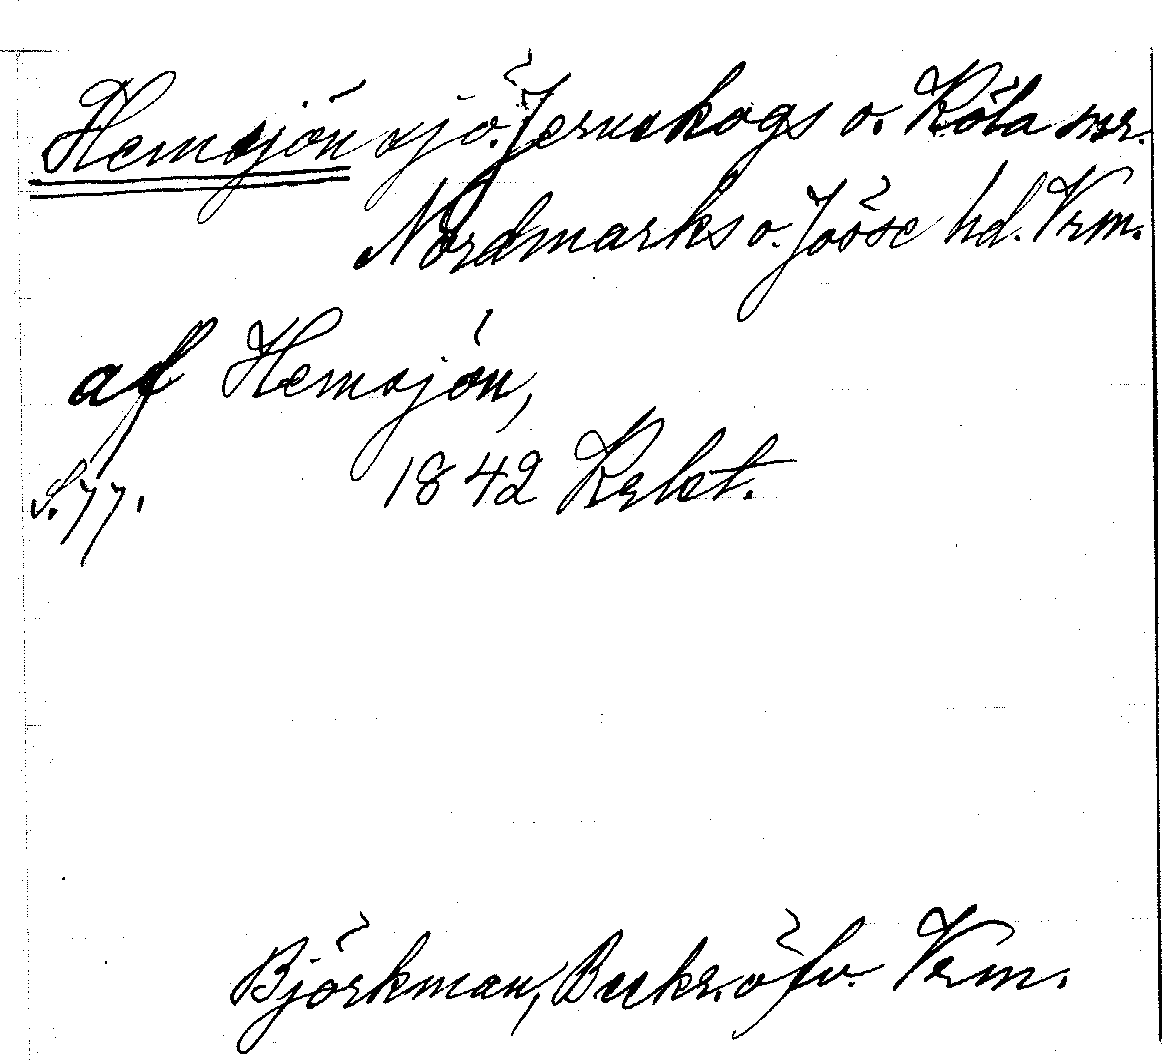 Hemsjön sjö. Jernskogs o. Köla snr.
Nordmarks o. Jösse hd. Vrm.
af Hemsjön,
S. 77. 1842 Krlet.
Björkman, Beskr. öfv. Vrm.